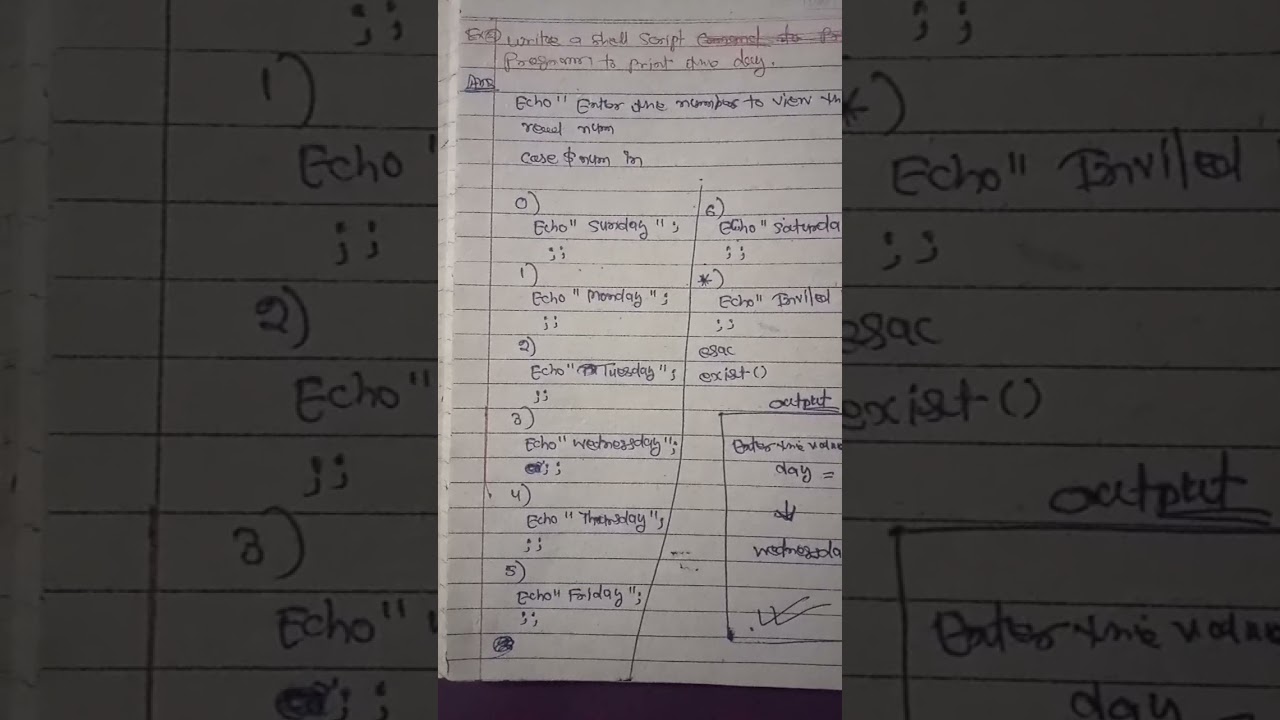 Ex:5) Write a Shell Script
Program to print the day.
Ans
Echo" Enter the number to view th
read num
case $ num in
0)
Echo" Sunday ";
;;
1)
Echo" Monday ";
;;
2)
Echo" Tuesday ";
;;
3)
Echo" Wednessday";
;;
4)
Echo" Thursday";
;;
5)
Echo" Friday";
;;
6)
Echo" Saturda
;;
*)
Echo" Inviled
;;
esac
exist()
output
Enter the value
day =
↓
wednessda